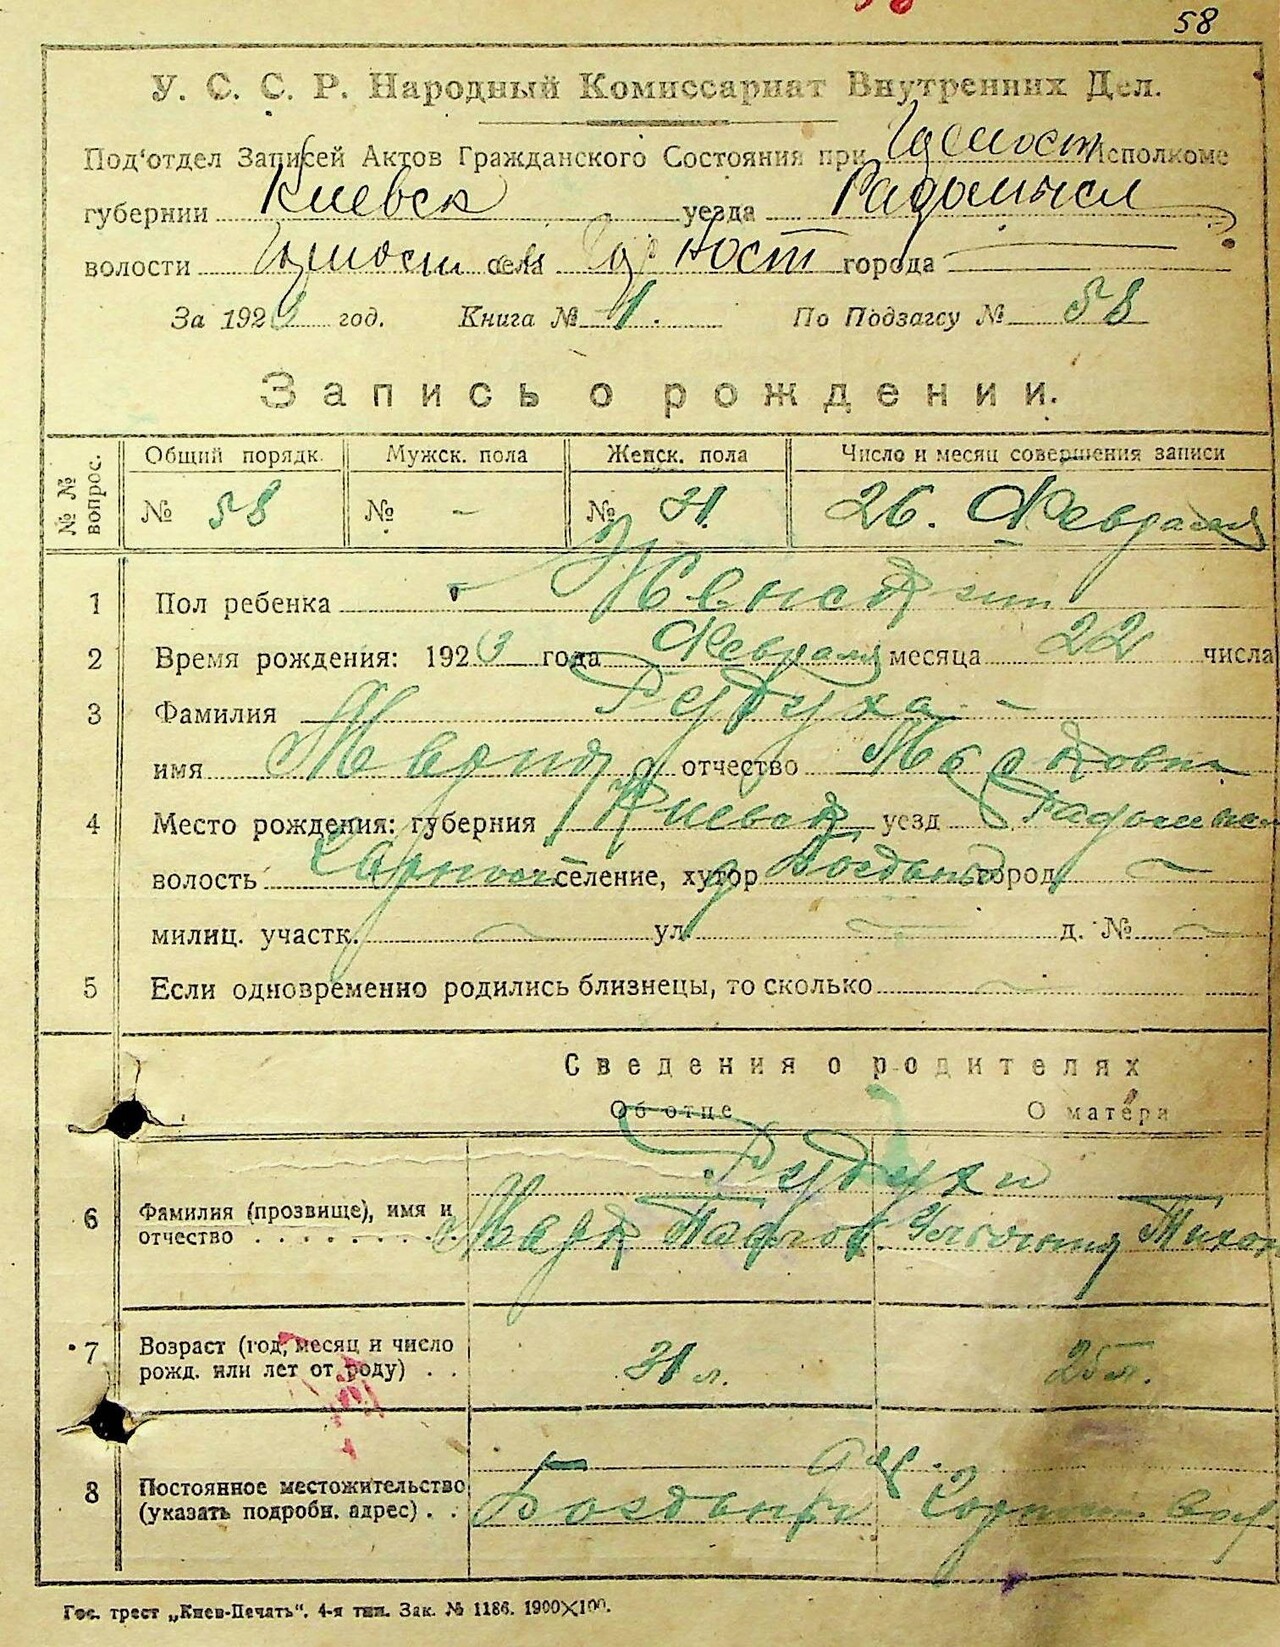 58
У. С. С. Р. Народный Комиссариат Внутренних Дел.
Под'отдел Записей Актов Гражданского Состояния при Исполкоме
губернии Киевск уезда Радомысл
волости села города
За 1923 год. Книга № 1. По Подзагсу № 58
Запись о рождении.
№ № вопрос. Общий порядк. Мужск. пола Женск. пола Число и месяц совершения записи
№ 58 № - № 31. 26. Февраля
1 Пол ребенка Женский
2 Время рождения: 1923 года Февраля месяца 22 числа
3 Фамилия Рудуха -
имя Мария отчество Марковна
4 Место рождения: губерния Киевск уезд Радомысл
волость селение, хутор город -
милиц. участк. - ул. - д. № -
5 Если одновременно родились близнецы, то сколько -
Сведения о родителях
Об отце О матери
Рудухи
6 Фамилия (прозвище), имя и отчество Марк Павлов. Тихон
7 Возраст (год, месяц и число рожд. или лет от роду) . . 31 л. 25 л.
8 Постоянное местожительство (указать подробн. адрес) . .
Гос. трест „Киев-Печать". 4-я тип. Зак. № 1186. 1900×100.